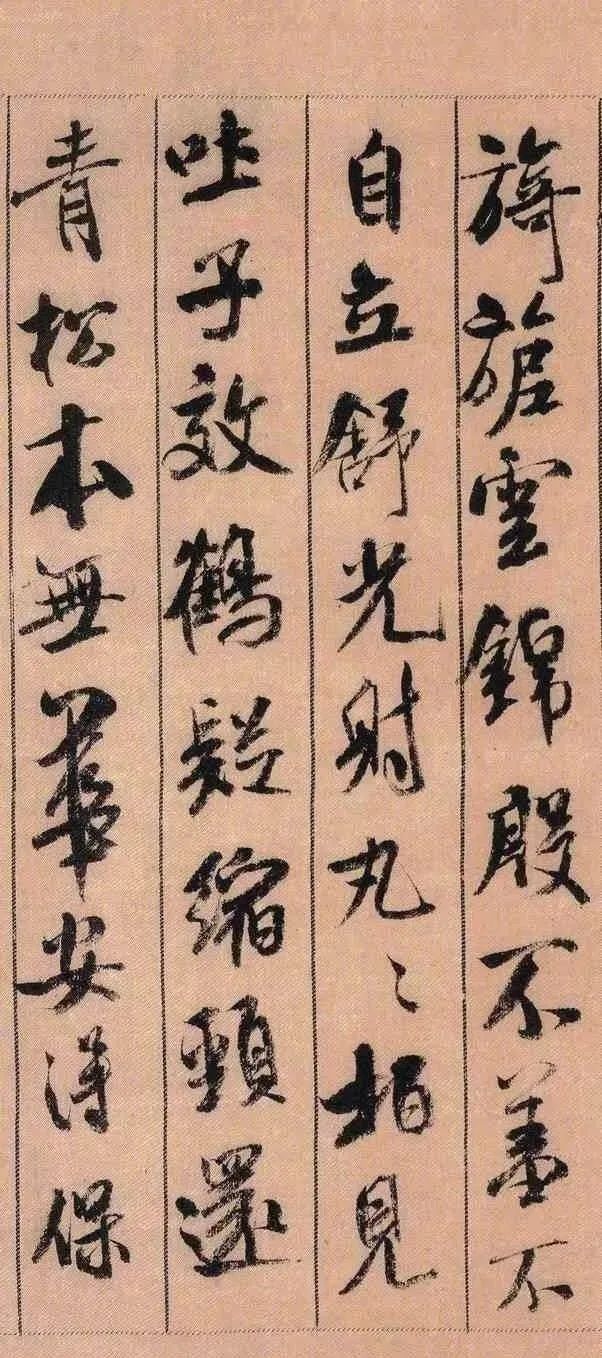 旖旎雲錦殷不羞不
自立舒光射丸〻柏見
吐子效鶴疑縮頸還
青松本無華安得保